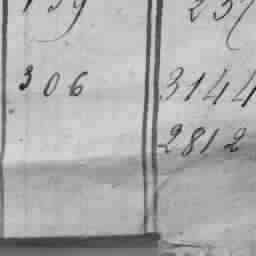 306 3144
2812